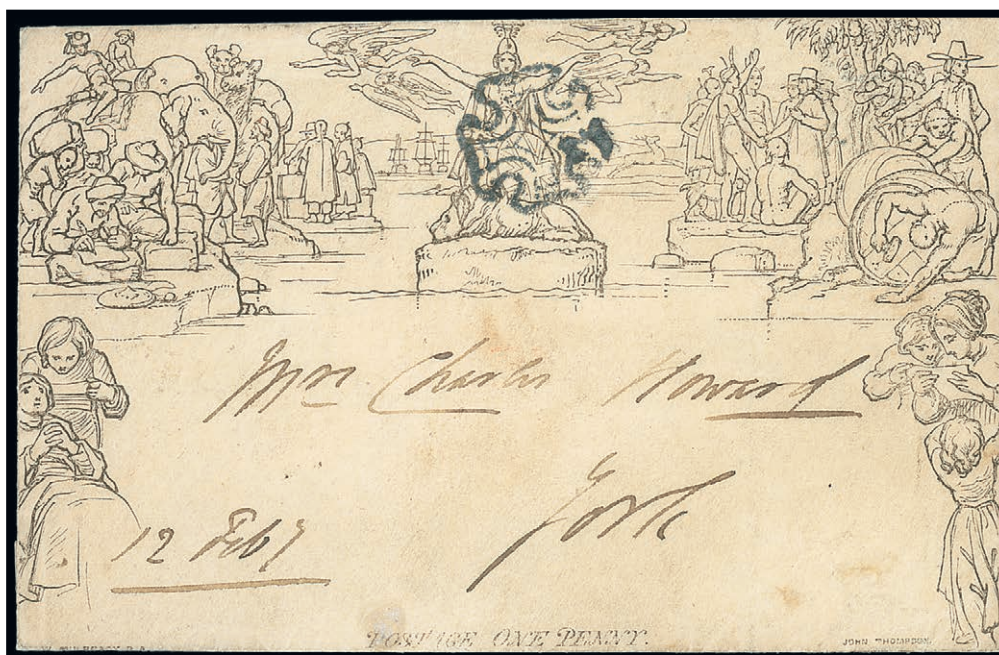 Mrs Charles Howard
York
12 Feby
POSTAGE ONE PENNY.
W. MULREADY. R.A.
JOHN THOMPSON.